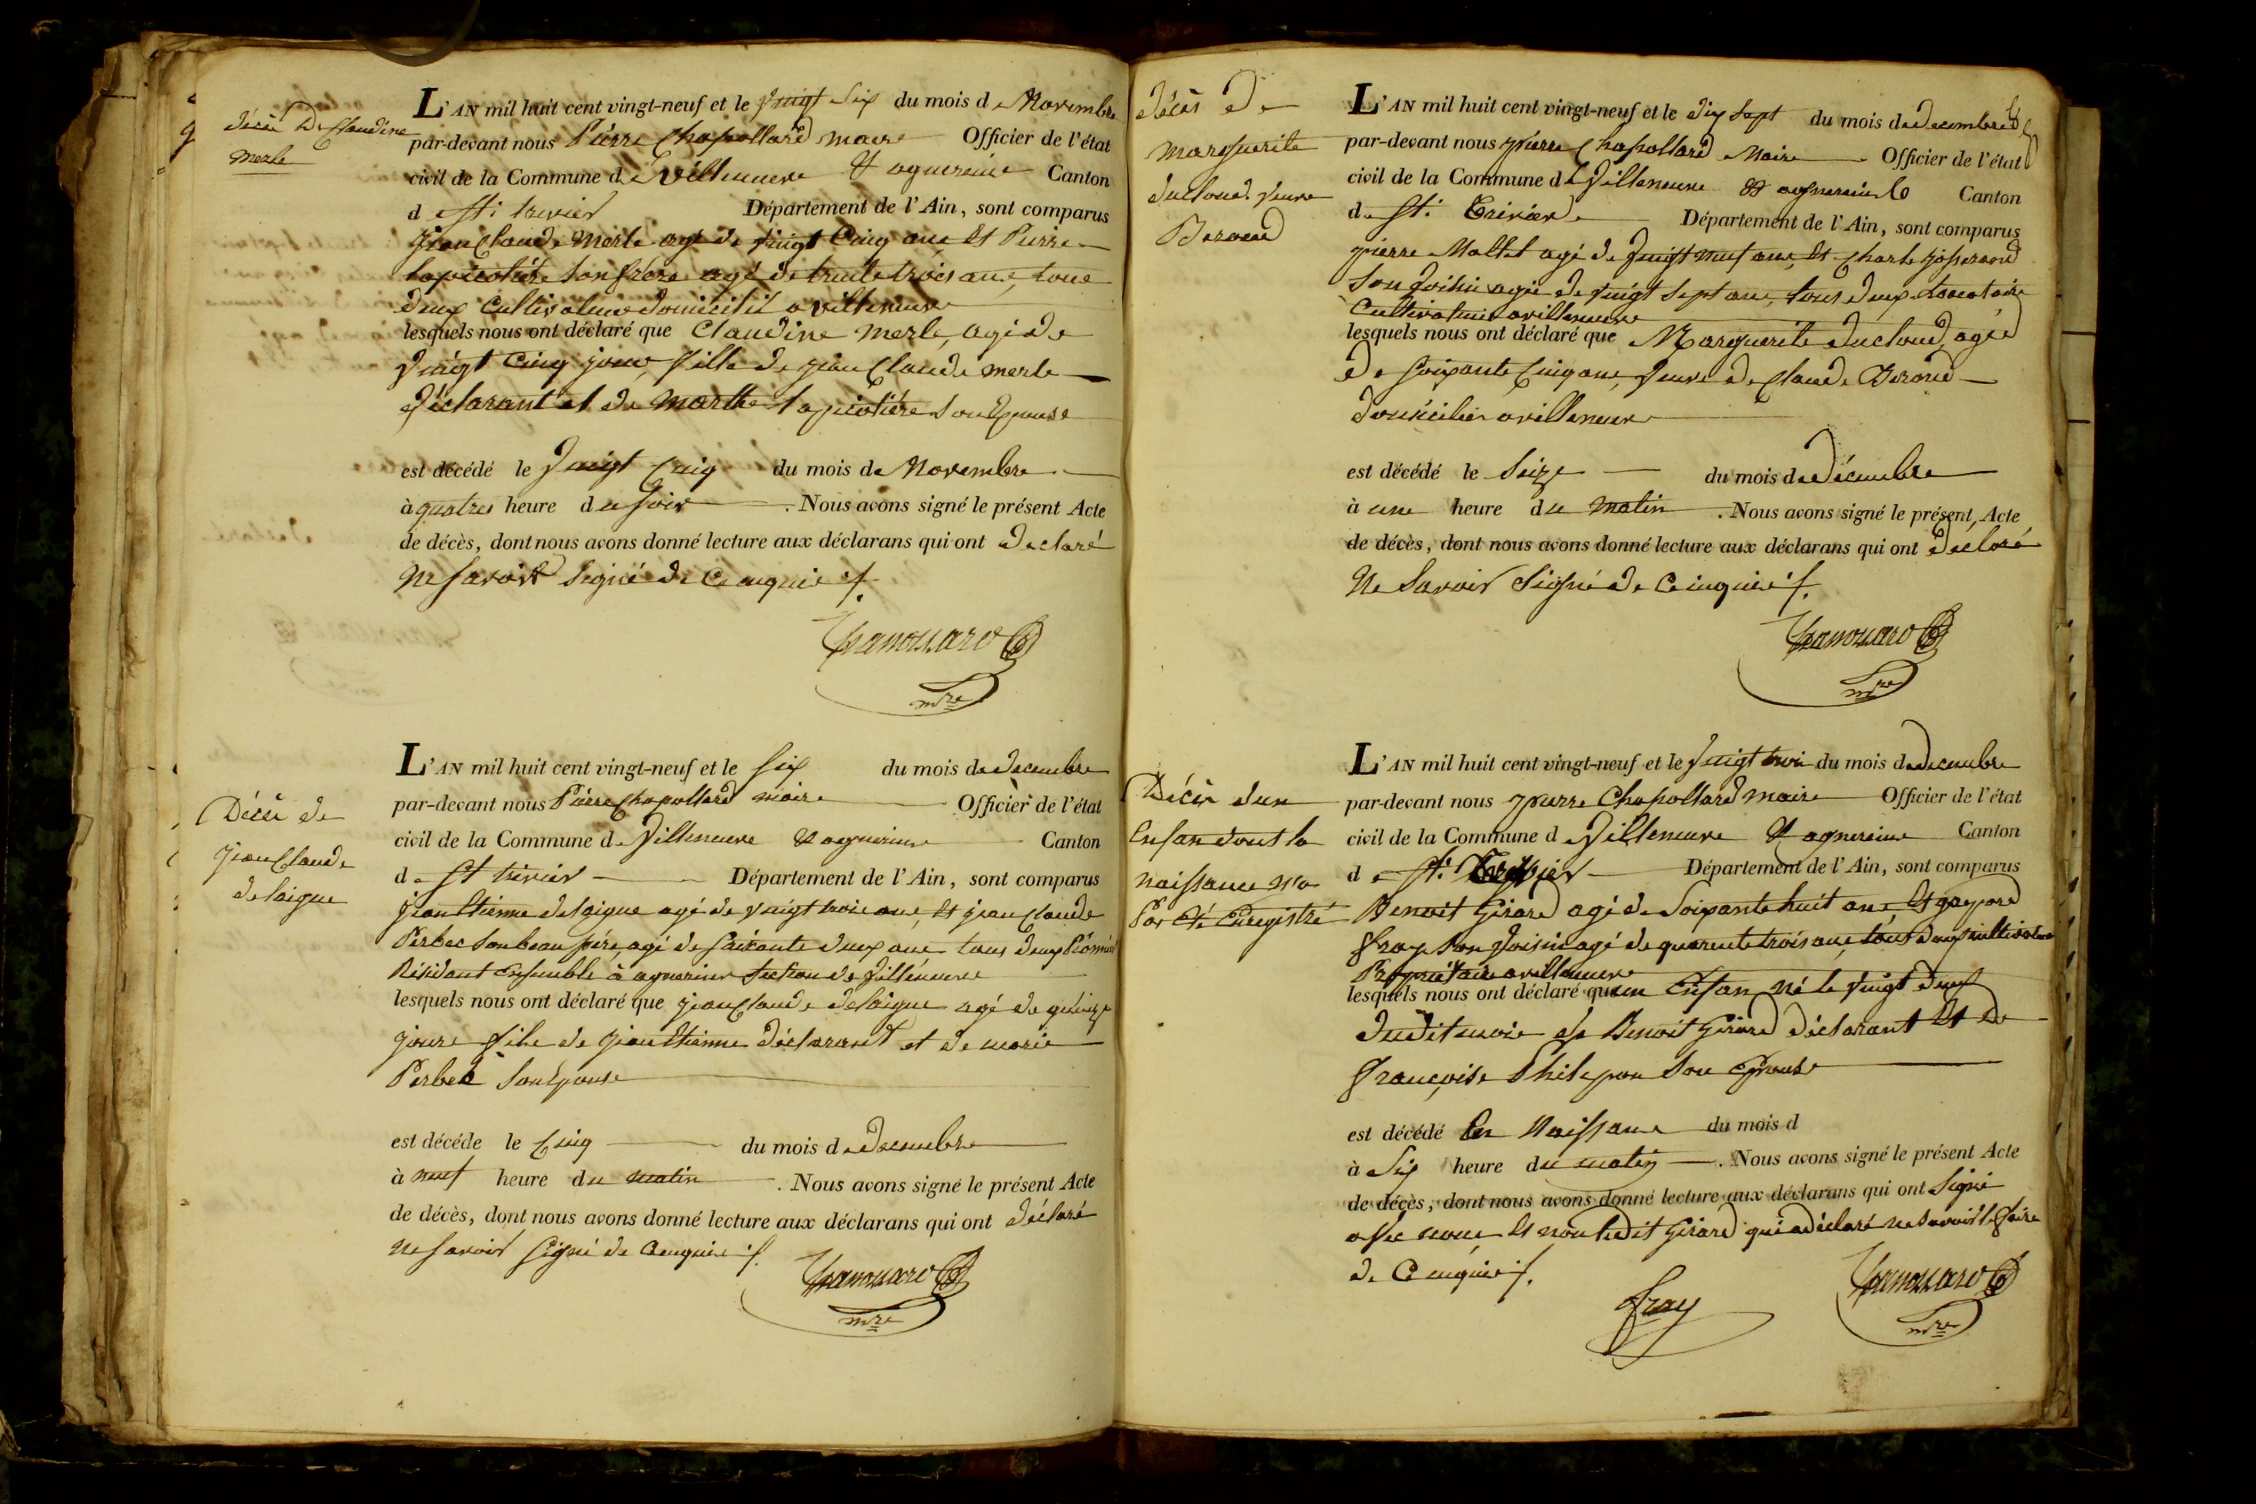 décès de Claudine
merle
L'AN mil huit cent vingt-neuf et le vingt six du mois de Novembre
par-devant nous Pierre Chapollard maire Officier de l'état
civil de la Commune de villeneuve & agnereins Canton
de St. trivier Département de l'Ain, sont comparus
jean Claude Merle agé de vingt Cinq ans et Pierre
lapicotière son frère agé de trente trois ans, tous
deux Cultivateurs domiciliés a villeneuve
lesquels nous ont déclaré que Claudine Merle, agée de
vingt Cinq jours, fille de jean Claude merle
déclarant et de Marthe lapicotière son Epouse
est décédé le vingt Cinq du mois de Novembre
à quatres heure du soir . Nous avons signé le présent Acte
de décès, dont nous avons donné lecture aux déclarans qui ont declaré
Ne savoir signé de Ce enquis
Chapollard
mre
Décès de
jean Claude
delaigue
L'AN mil huit cent vingt-neuf et le six du mois de decembre
par-devant nous Pierre Chapollard maire Officier de l'état
civil de la Commune de Villeneuve & agnereins Canton
de St trivier Département de l'Ain, sont comparus
jean Etienne delaigue agé de vingt trois ans, et jean Claude
Perbet son beau père, agé de soixante deux ans tous deux
Résidant Ensemble à agnereins section de villeneuve
lesquels nous ont déclaré que jean Claude delaigue agé de quinze
jours fils de jean Etienne déclarant et de marie
Perbet son Epouse
est décéde le Cinq du mois de decembre
à neuf heure du matin . Nous avons signé le présent Acte
de décès, dont nous avons donné lecture aux déclarans qui ont déclaré
Ne savoir signé de Ce enquis
Chapollard
mre
décès de
marguerite
ducloud veuve
Beroud
L'AN mil huit cent vingt-neuf et le dix sept du mois de decembre
par-devant nous pierre Chapollard Maire Officier de l'état
civil de la Commune de Villeneuve & agnereins Canton
de St. Trivier Département de l'Ain, sont comparus
pierre Mallet agé de vingt neuf ans, et Charle josserand
son voisin agée de vingt sept ans, tous deux
Cultivateurs a villeneuve
lesquels nous ont déclaré que Marguerite ducloud, agée
de soixante Cinq ans, veuve de Claude Beroud
domiciliée a villeneuve
est décédé le seize du mois de décembre
à une heure du matin . Nous avons signé le présent, Acte
de décès, dont nous avons donné lecture aux déclarans qui ont declaré
Ne savoir signé de Ce enquis
Chapollard
mre
Décès d'un
Enfan dont la
naissance n'a
Pas été Enregistré
L'AN mil huit cent vingt-neuf et le vingt trois du mois de decembre
par-devant nous pierre Chapollard maire Officier de l'état
civil de la Commune de Villeneuve & agnereins Canton
de St. Trivier Département de l'Ain, sont comparus
Benoit Girard agé de soixante huit ans et
fray son voisin agé de quarente trois ans, tous deux cultivateurs
Propriétaires a villeneuve
lesquels nous ont déclaré que un Enfan né le vingt deux
dudit mois de Benoit Girard déclarant et de
françoise Philipon son Epouse
est décédé En Naissant du mois d
à six heure du matin . Nous avons signé le présent Acte
de décès, dont nous avons donné lecture aux déclarans qui ont signé
avec nous et non ledit Girard qui a déclaré ne savoir le faire
de Ce enquis
fray
Chapollard
mre